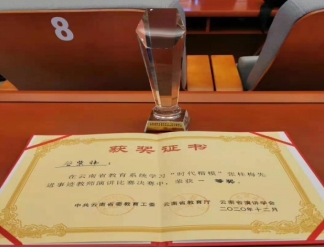 8
获奖证书
在云南省教育系统学习"时代楷模"张桂梅先
进事迹教师演讲比赛决赛中，荣获一等奖。
中共云南省委教育工委 云南省教育厅 云南省演讲学会
二〇二〇年十二月